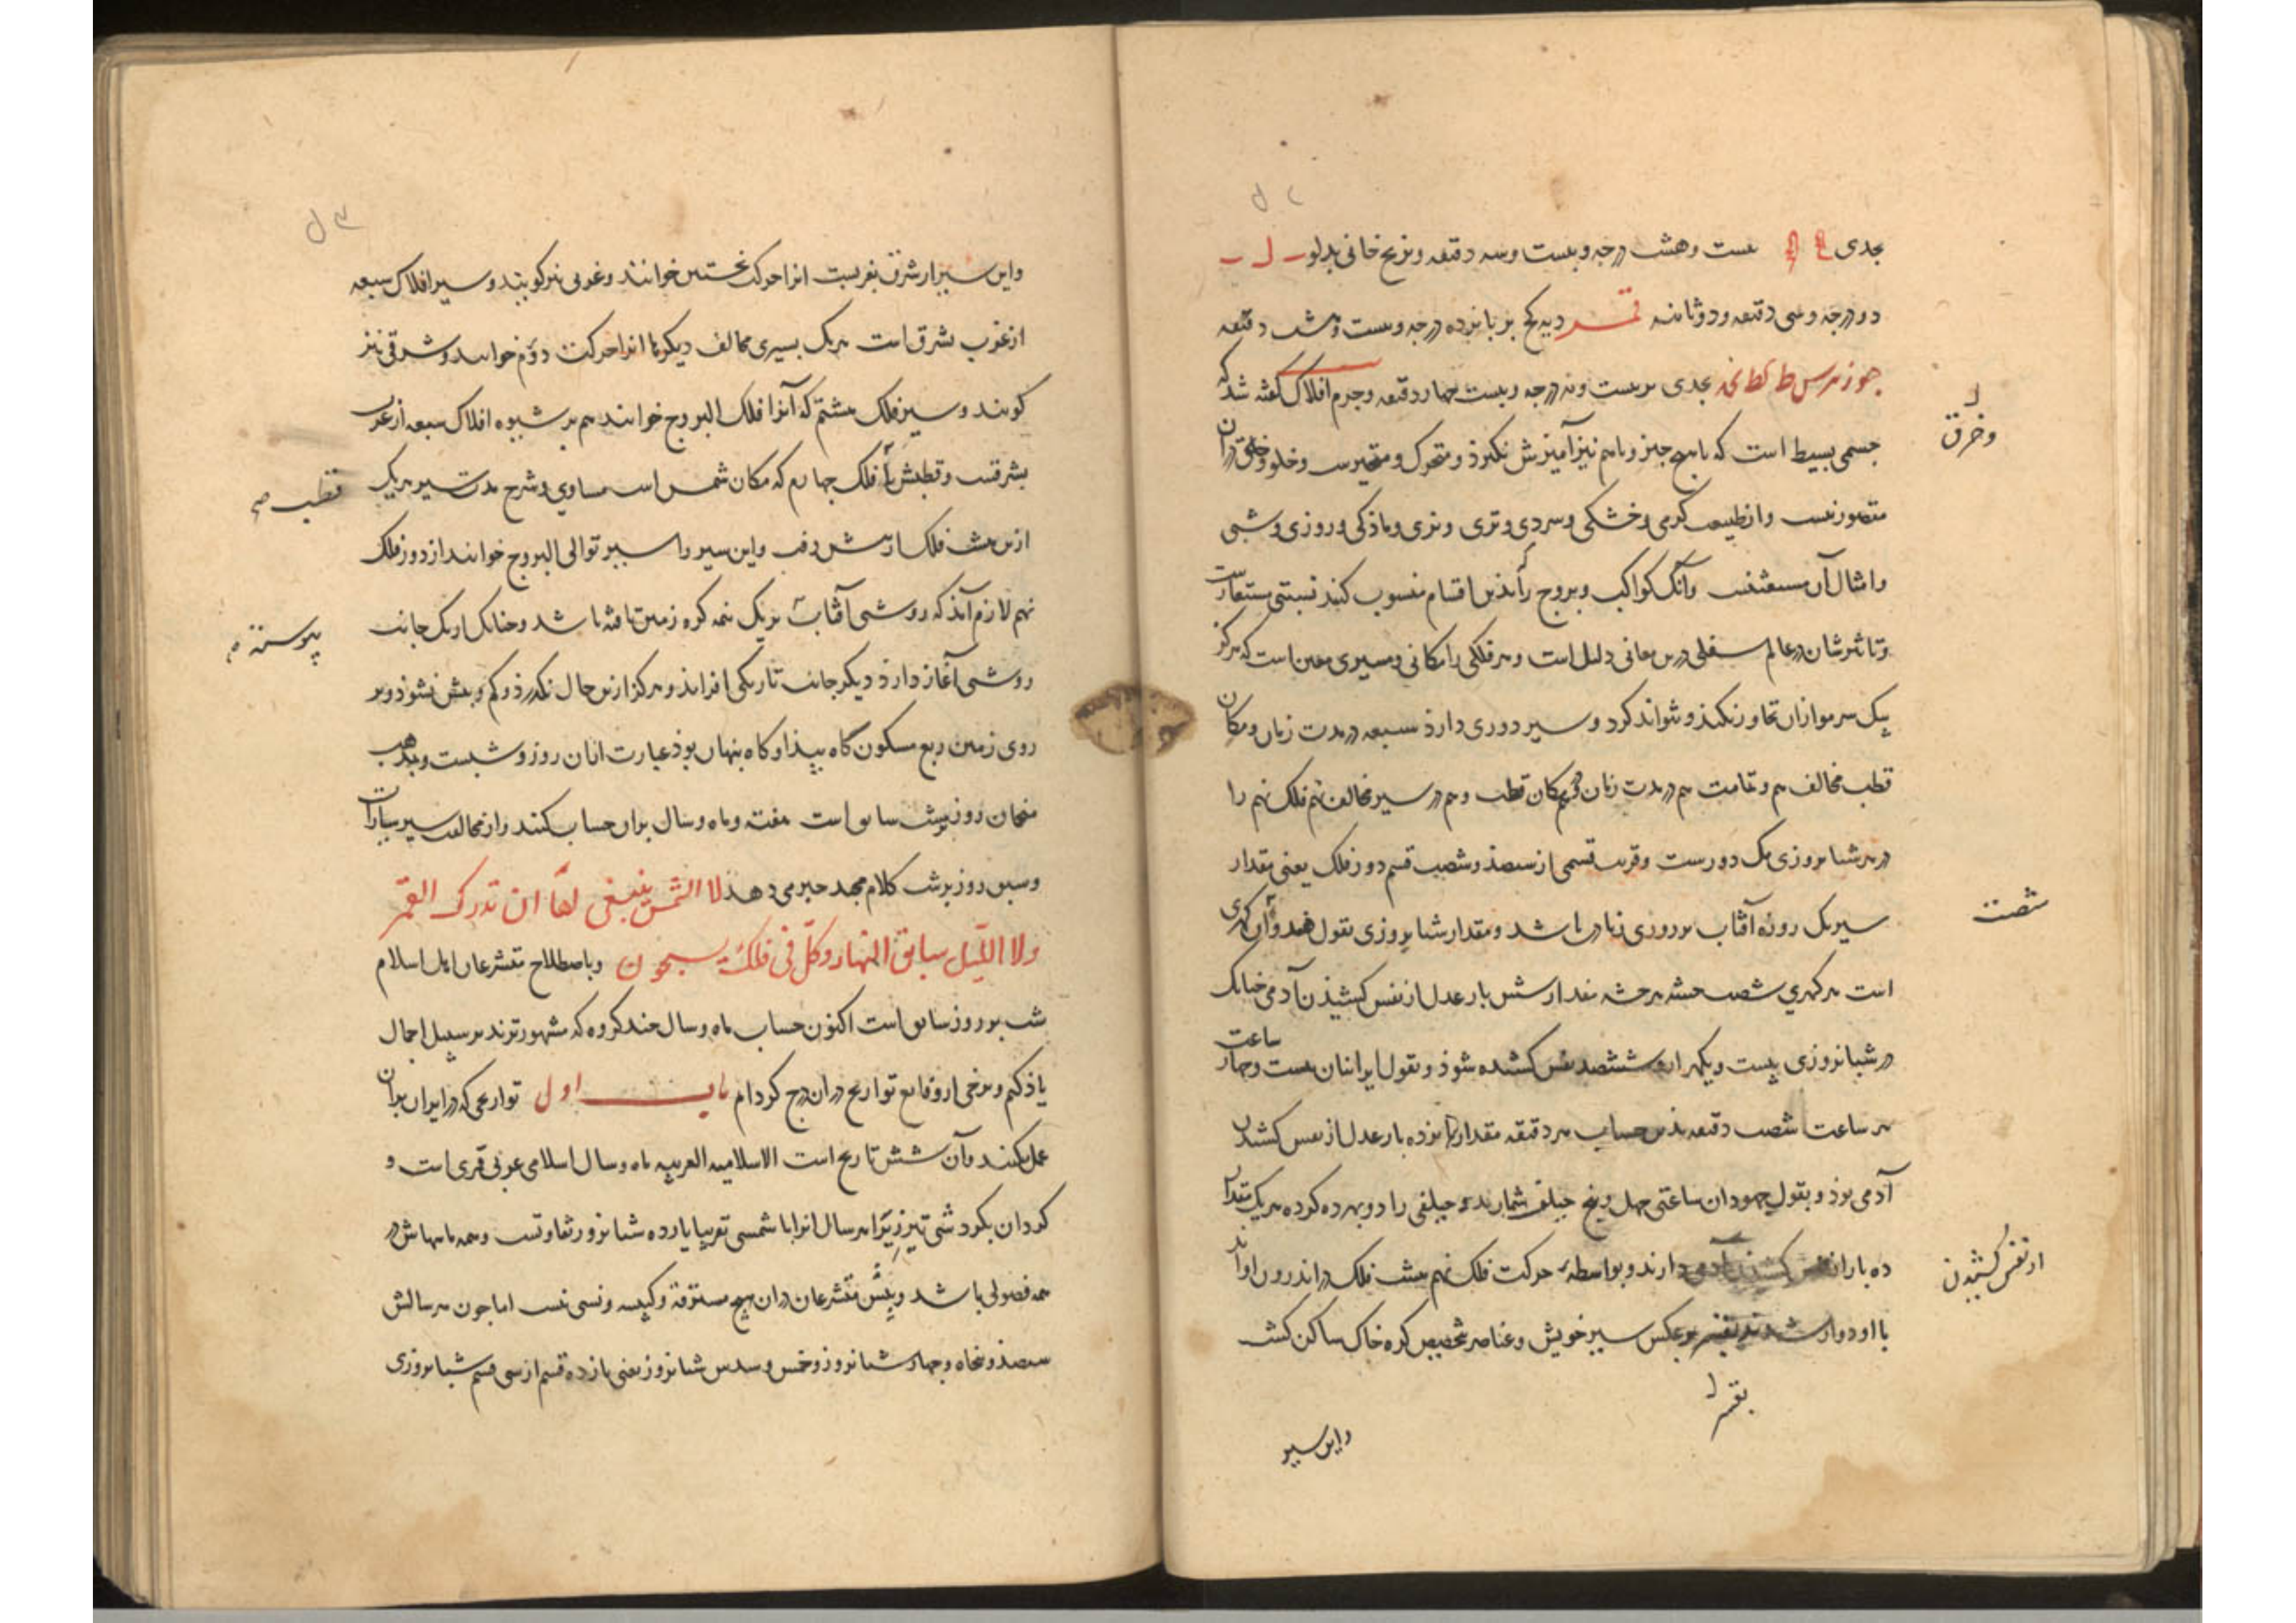 بجدی بیست و هشت درجه و بیست و سه دقیقه و بزیج خانی بدلو
دو درجه و سی دقیقه و دو ثانیه بر پانزده درجه و بیست و هشت دقیقه
بجدی بر بیست و نه درجه و بیست چهار دقیقه و جرم افلاک گفته شد که
جسمی بسیط است که با هیچ چیز و با هم نیز آمیزش نگیرذ و متحرک و متحیرست و خلو و خلق دران
و خرق
متصور نیست و از طبیعت گرمی و خشکی و سردی و تری و نری و ماذکی و روزی و شبی
و امثال آن مستغنیست و آنک کواکب و بروج را بذین اقسام منسوب کنند نسبتی مستعارست
و تاثیرشان در عالم سفلی درین معانی دلیل است و هر فلکی را مکانی و مسیری معین است که هرگز
یک سر مو ازان تجاوز نکند و نتواند کرد و سیر دوری دارذ سبعه در مدت زمان و مکان
قطب مخالف هم و ثامنت هم در مدت زمان و هم مکان قطب و هم در سیر مخالف نهم فلک نهم را
در هر شبانروزی یک دورست و قرب قسمی از سیصذ و شصت قسم دور فلک یعنی مقدار
سیر یک روزه آفتاب بر دوری زیادت باشد و مقدار شبانروزی بقول هندوان کهری
شصت
است هر کهری شصت هر مقدار شش بار عدل از نفس کشیذن آدمی چنانک
در شبانروزی بیست و یکهزار و ششصد نفس کشیده شوذ و بقول ایرانیان بیست و چهار ساعت
هر ساعت شصت دقیقه بذین حساب هر دقیقه مقدار پانزده بار عدل از نفس کشیدن
آدمی بوذ و بقول جهودان ساعتی چهل و پنج جیلق شمارند و جیلقی را دو بهره کرده هر یک مقدار
ده بار از نفس کشیدن آدمی دارند و بواسطه حرکت فلک نهم هشت فلک در اندرون او اند
از نفس کشیدن
با او دوار شدند بر عکس سیر خویش و عناصر تخصیص کره خاک ساکن گشت
بقسر
و این سیر
و این سیر از شرق بغربست انرا حرکت نخستین خوانند و غربی نیز گویند و سیر افلاک سبعه
از غرب بشرق است هر یک بسیری مخالف دیگر انرا حرکت دوم خوانند و شرقی نیز
گویند و سیر فلک هشتم که آنرا فلک البروج خوانند هم بر شیوه افلاک سبعه از غرب
بشرقست و قطبش با فلک چهارم که مکان شمس است مساوی و شرح مدت سیر هر یک
قطب
ازین هشت فلک از پیش رفت و این سیر را سیر توالی البروج خوانند از دور فلک
نهم لازم آیذ که روشنی آفتاب بر یک نیمه کره زمین تافته باشد و چنانک از یک جانب
پیوسته
روشنی آغاز دارذ دیگر جانب تاریکی افزایذ و هرگز ازین حال نگذرذ و کم و بیش نشوذ و بر
روی زمین ربع مسکون گاه پیذا و گاه پنهان بوذ عبارت ازان روز و شبست و بمذهب
منجمان روز بر شب سابق است هفته و ماه و سال بران حساب کنند و از مخالفت سیر سیارات
و سبق روز بر شب کلام مجید خبر می دهذ لا الشمس ینبغی لها ان تدرک القمر
ولا اللیل سابق النهار وکل فی فلک یسبحون و باصطلاح متشرعان اهل اسلام
شب بر روز سابق است اکنون حساب ماه و سال چند گروه که مشهورترند بر سبیل اجمال
یاذ کنم و برخی از وقایع تواریخ دران درج کردام باب اول تواریخی که در ایران بران
عمل کنند و آن شش تاریخ است الاسلامیه العربیه ماه و سال اسلامی عربی قمری است و
گردان بگردشی تیز زیرا هر سال انرا با شمسی تقریبا یازده شبانروز تفاوتست و همه ماهاش در
همه فصولی باشد و پیش متشرعان دران هیچ مسترقه و کبیسه و نسی نیست اما چون هر سالش
سیصذ و پنجاه و چهار شبانروز و خمس و سدس شبانروز یعنی یازده قسم از سی قسم شبانروزی